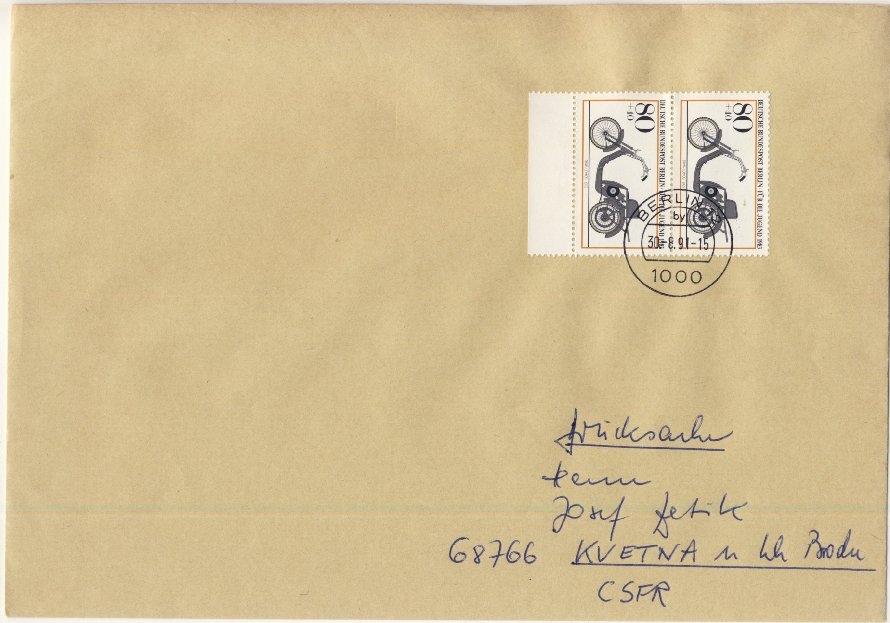 80
+40
DEUTSCHE BUNDESPOST BERLIN
80
+40
DEUTSCHE BUNDESPOST BERLIN FÜR DIE JUGEND 1985
BERLIN
by
30-8.91-15
1000
Drucksache
Herrn
Josef
68766 KVETNA u Uh Brodu
CSFR